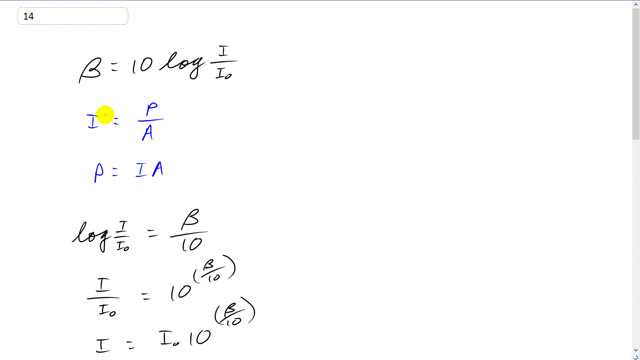 14
β = 10 log I/I₀
I = P/A
P = IA
log I/I₀ = β/10
I/I₀ = 10^(β/10)
I = I₀ 10^(β/10)